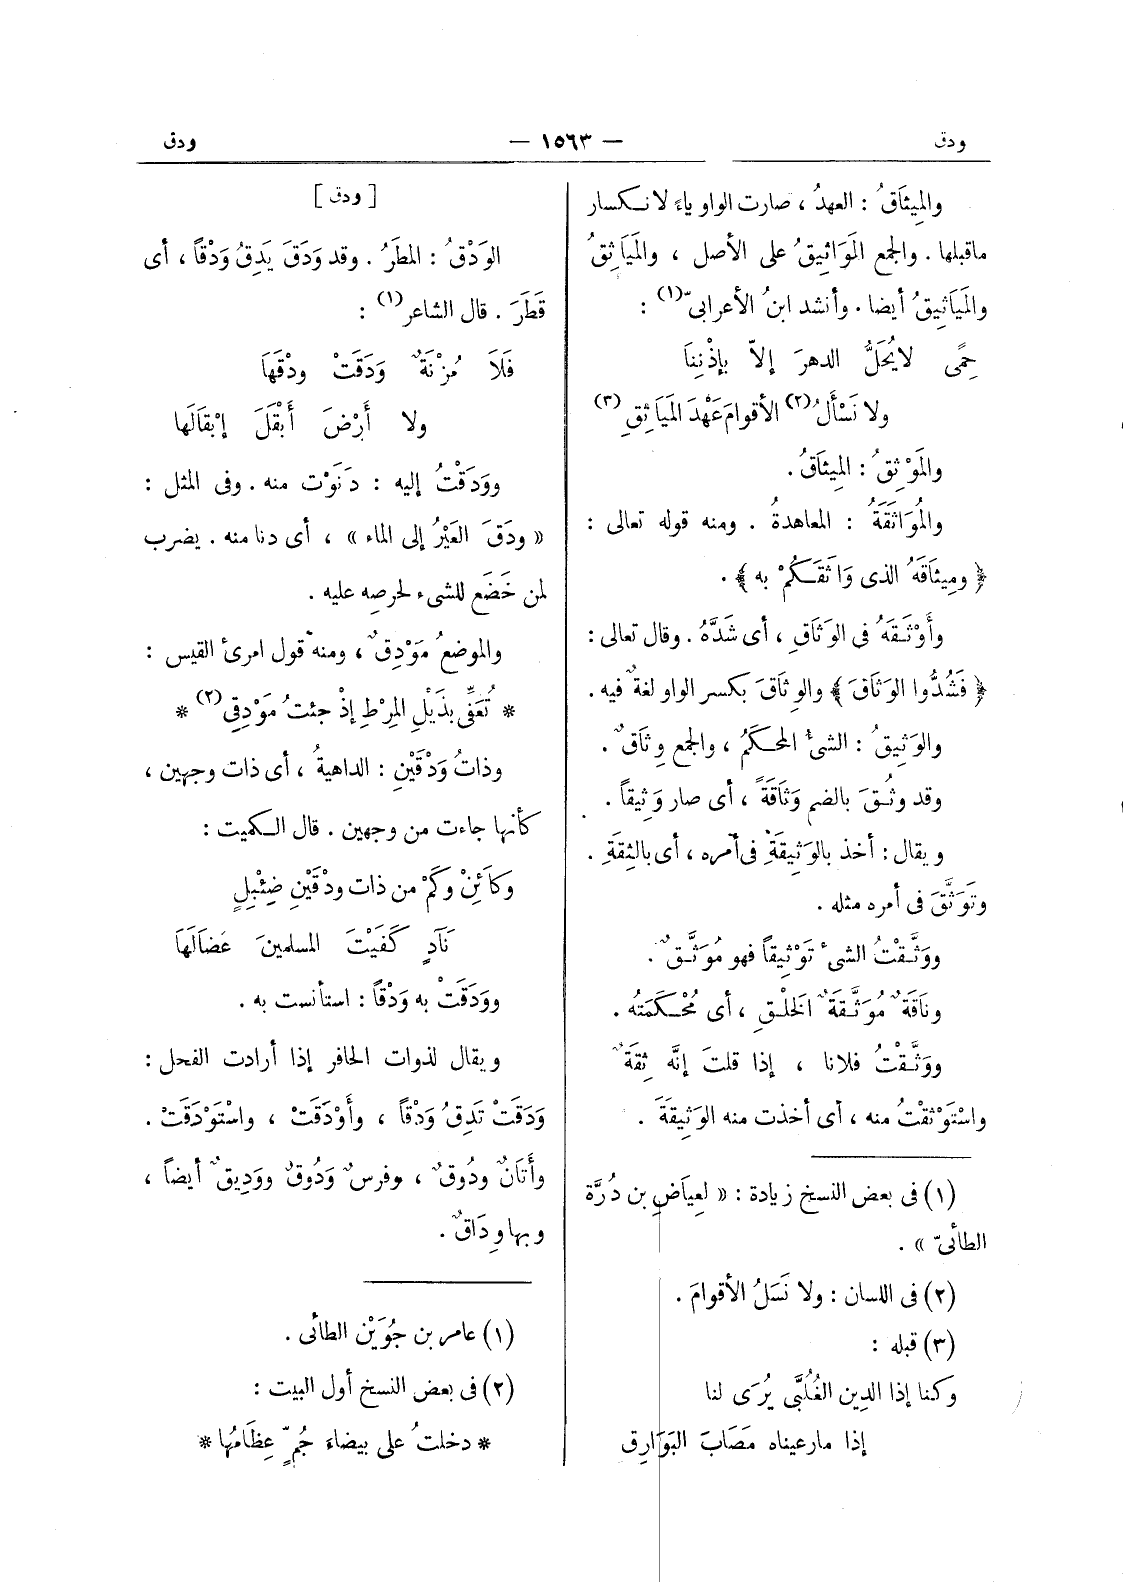 ودق — ١٥٦٣ — ودق
والمِيثَاقُ : العهدُ ، صارت الواو ياءً لانكسار
ماقبلها . والجمع المَوَاثِيقُ على الأصل ، والمَيَاثِقُ
والمَيَاثِيقُ أيضا . وأنشد ابنُ الأعرابىّ (١) :
حِمًى لايُحَلُّ الدهرَ إلاّ بإذْنِنَا
ولا نَسْأَلُ (٢) الأقوامَ عَهْدَ المَيَاثِقِ (٣)
والمَوْثِقُ : المِيثاقُ .
والمُوَاثَقَةُ : المعاهدةُ . ومنه قوله تعالى :
﴿ ومِيثاقَهُ الذى وَاثَقَكُمْ به ﴾ .
وأَوْثَقَهُ فى الوَثَاقِ ، أى شَدَّهُ . وقال تعالى :
﴿ فَشُدُّوا الوَثَاقَ ﴾ والوِثاقَ بكسر الواو لغةٌ فيه .
والوَثِيقُ : الشىءُ المحكَمُ ، والجمع وِثاقٌ .
وقد وثُقَ بالضم وَثَاقَةً ، أى صار وَثيقاً .
ويقال : أخذ بالوَثِيقَةِ فى أمره ، أى بالثِقَةِ .
وتَوَثَّقَ فى أمره مثله .
ووَثَّقْتُ الشىءَ تَوْثِيقاً فهو مُوَثَّقٌ .
ونَاقَةٌ مُوَثَّقَةُ الخلْقِ ، أى مُحْكَمَتُه .
ووَثَّقْتُ فلانا ، إذا قلتَ إنَّه ثِقَةٌ
واسْتَوْثقْتُ منه ، أى أخذت منه الوَثِيقَةَ .
(١) فى بعض النسخ زيادة : « لعِيَاضِ بن دُرَّة
الطائىّ » .
(٢) فى اللسان : ولا نَسَلُ الأقوامَ .
(٣) قبله :
وكنا إذا الدِين الغُلُبَّى يُرَى لنا
إذا مارعيناه مَصَابَ البَوَارِقِ
[ ودق ]
الوَدْقُ : المطَرُ . وقد وَدَقَ يَدِقُ وَدْقاً ، أى
قَطَرَ . قال الشاعر (١) :
فَلَا مُزْنَةٌ وَدَقَتْ ودْقَهَا
ولا أَرْضَ أَبْقَلَ إبْقَالَها
ووَدَقْتُ إليه : دَنَوْت منه . وفى المثل :
« ودَقَ العَيْرُ إلى الماء » ، أى دنا منه . يضرب
لمن خَضَع للشىء لحرصِه عليه .
والموضعُ مَوْدِقٌ ، ومنه قول امرئ القيس :
* تُعَفِّى بذَيْلِ المِرْطِ إذْ جئتُ مَوْدِقِى (٢) *
وذاتُ وَدْقَيْنِ : الداهيةُ ، أى ذات وجهين ،
كأنها جاءت من وجهين . قال الكميت :
وكَائِنْ وكَمْ من ذات ودْقَيْنِ ضِئْبِلٍ
نَآدٍ كَفَيْتَ المسلمينَ عَضَالَهَا
ووَدَقْتُ به وَدْقاً : استأنست به .
ويقال لذوات الحافر إذا أرادت الفحل :
وَدَقَتْ تَدِقُ وَدْقاً ، وأَوْدَقَتْ ، واسْتَوْدَقَتْ .
وأَتَانٌ ودُوقٌ ، وفرسٌ وَدُوقٌ ووَدِيقٌ أيضاً ،
وبها وِدَاقٌ .
(١) عامر بن جُوَيْن الطائى .
(٢) فى بعض النسخ أول البيت :
* دخلتُ على بيضاءَ جُمٍّ عِظَامُها *